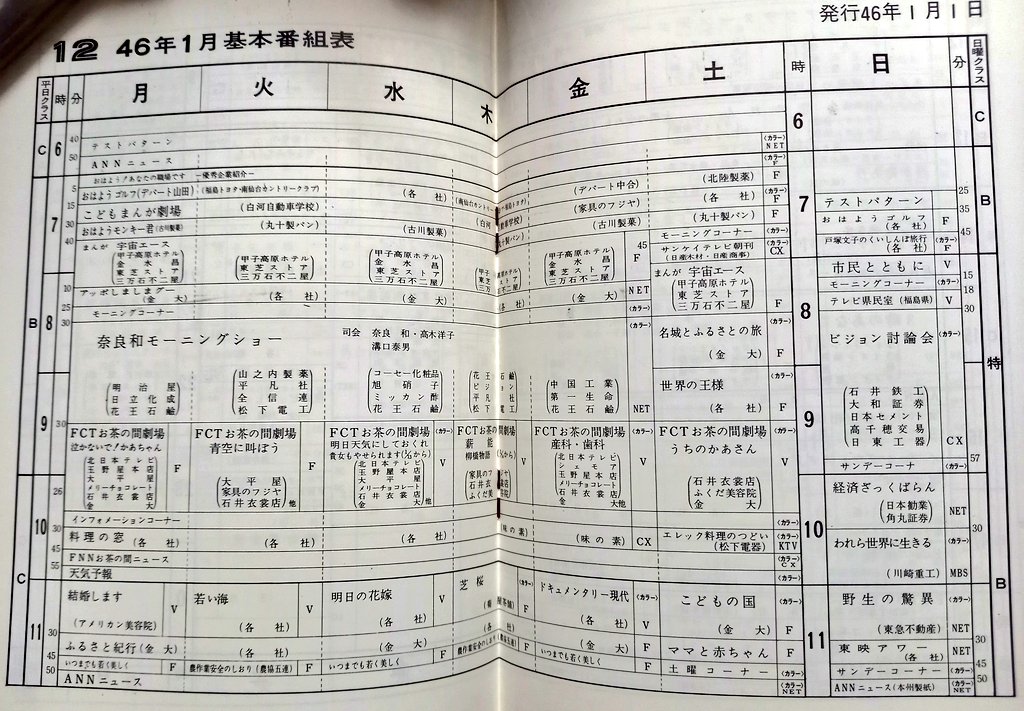 発行46年1月1日
12 46年1月基本番組表
平日クラス 時 分 月 火 水 木 金 土 時 日 分 日曜クラス
C 6 40 テストパターン (カラー) NET 6 C
50 ANNニュース (カラー) F
おはよう!あなたの職場です -優秀企業紹介- (カラー)
5 おはようゴルフ(デパート山田) (福島トヨタ・南仙台カントリークラブ) (各社) (デパート中合) (北陸製薬) F
7 こどもまんが劇場 (白河自動車学校) (家具のフジヤ) (各社) (カラー) F 7 B
おはようモンキー君(古川製薬) (丸十製パン) (古川製薬) (古川製薬) (丸十製パン) F
テストパターン 25
おはようゴルフ (各社) F 35
戸塚文子のくいしんぼ旅行 (各社) (カラー) F 45
30
40
モーニングコーナー (カラー)
45 サンケイテレビ朝刊 (日産木材・日産商事) (カラー) CX
F
まんが 宇宙エース
甲子高原ホテル
金水晶
東芝ストア
三万石不二屋
甲子高原ホテル
東芝ストア
三万石不二屋
甲子高原ホテル
金水晶
東芝ストア
三万石不二屋
甲子高原ホテル
金水晶
東芝ストア
三万石不二屋
まんが 宇宙エース
甲子高原ホテル
東芝ストア
三万石不二屋
(カラー) F
市民とともに V 15
モーニングコーナー (カラー) 18
テレビ県民室(福島県) V 30
10 アップしましまグー (金大) (各社) (金大) (各社) (金大) NET
25 モーニングコーナー (カラー)
B 8 30
奈良和モーニングショー
司会 奈良 和・高木洋子
溝口泰男
(カラー)
名城とふるさとの旅 (カラー)
(金大) F
8
ビジョン討論会 (カラー)
特
石井鉄工
大和証券
日本セメント
高千穂交易
日東工器
CX
明治屋
日立化成
花王石鹸
山之内製薬
平凡社
全信連
松下電工
コーセー化粧品
旭硝子
ミツカン酢
花王石鹸
中国工業
第一生命
花王石鹸
NET
世界の王様 (カラー)
(各社) F
9 30
FCTお茶の間劇場
泣かないで!かあちゃん
北日本テレビ
玉野屋本店
大平屋
メリーチョコレート
石井衣裳店
金大
F
FCTお茶の間劇場
青空に叫ぼう
大平屋
家具のフジヤ
石井衣裳店
他
F
FCTお茶の間劇場 (カラー)
明日天気にしておくれ
北日本テレビ
玉野屋本店
大平屋
メリーチョコレート
石井衣裳店
金大他
V
FCTお茶の間劇場
柳橋物語
V
FCTお茶の間劇場 (カラー)
産科・歯科
北日本テレビ
シェモア
玉野屋本店
メリーチョコレート
石井衣裳店
金大他
V
FCTお茶の間劇場 (カラー)
うちのかあさん
石井衣裳店
ふくだ美容院
金大
V
9
サンデーコーナー (カラー) 57
経済ざっくばらん
(日本勧業
角丸証券) NET
30
26 インフォメーションコーナー (カラー)
10 30 料理の窓 (各社) (各社) (各社) (味の素) (味の素) CX エレック料理のつどい (松下電器) (カラー) KTV 10
われら世界に生きる (カラー)
(川崎重工) MBS
45 FNNお茶の間ニュース (カラー) CX
55 天気予報 (カラー)
C B
結婚します
(アメリカン美容院) V
若い海
(各社) V
明日の花嫁
(各社) V
芝桜 (カラー) F
ドキュメンタリー現代
(各社) (カラー) V
こどもの国 (カラー)
(金大) F
野生の驚異 (カラー)
(東急不動産) NET
11 30 ふるさと紀行(金大) F (各社) (金大) F (金大) F ママと赤ちゃん (カラー) F 11
東映アワー (各社) NET 30
45 いつまでも若く美しく F 農作業安全のしおり(農協五連) F いつまでも若く美しく F 農作業安全のしおり(農協五連) F いつまでも若く美しく F 土曜コーナー (カラー)
サンデーコーナー (カラー) 45
50 ANNニュース (カラー) NET
ANNニュース(本州製紙) (カラー) NET 50